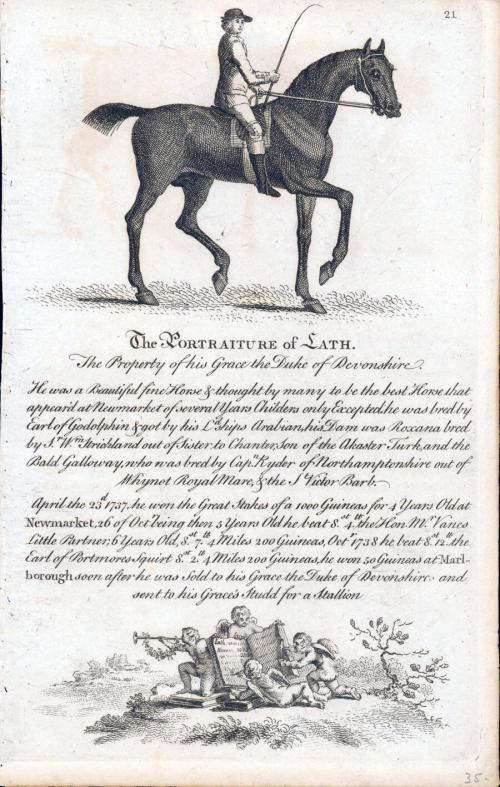 21
The PORTRAITURE of LATH.
The Property of his Grace the Duke of Devonshire.
He was a Beautiful fine Horse & thought by many to be the best Horse that
appear'd at Newmarket of several Years Childers only Excepted, he was bred by
Earl of Godolphin & got by his Ld.ships Arabian, his Dam was Roxana bred
by Sr. Wm. Strickland out of Sister to Chanter, Son of the Akaster Turk, and the
Bald Galloway, who was bred by Capn. Ryder of Northamptonshire out of
Whynot Royal Mare, & the St. Victor Barb.
April the 23d. 1737, he won the Great Stakes of a 1000 Guineas for 4 Years Old at
Newmarket, 26 of Octr. being then 5 Years Old he beat 8st. 4lb. the Hon. Mr. Vanes
Little Partner, 6 Years Old, 8st. 7lb. 4 Miles 200 Guineas, Octr. 1738 he beat 8st. 12lb. the
Earl of Portmores Squirt 8st. 2lb. 4 Miles 200 Guineas, he won 50 Guineas at Marl-
borough soon after he was Sold to his Grace the Duke of Devonshire and
sent to his Grace's Studd for a Stallion
35.-